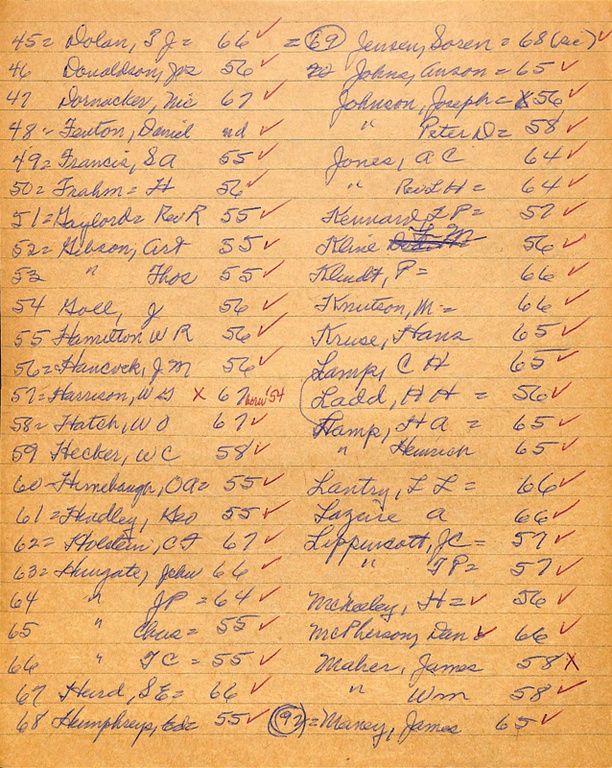 45= Dolan, P J = 66 ✓
46 Donaldson, Jos 56 ✓
47 Dornacker, Nic 67 ✓
48- Fenton, Daniel nd ✓
49= Francis, S A 55 ✓
50= Frahm = H 56 ✓
51= Gaylord = Rev R 55 ✓
52= Gibson, Art 55 ✓
53 " Thos 55 ✓
54 Goll, J 56 ✓
55 Hamilton W R 56 ✓
56= Hancock, J M 56 ✓
57= Harrison, W G x 67 here '54
58= Hatch, W O 67 ✓
59 Hecker, W C 58 ✓
60- Himebaugh, O A = 55 ✓
61= Hindley, Geo 55 ✓
62= Holstein, C F 67 ✓
63= Hungate, John 66 ✓
64 " J P = 64 ✓
65 " Chas = 55 ✓
66 " T C = 55 ✓
67 Hurd, S E = 66 ✓
68 Humphreys, 55 ✓
= 69 Jensen, Soren = 68 (sic) ✓
Johns, Anson = 65 ✓
Johnson, Joseph = 56 ✓
" Peter D = 58 ✓
Jones, A C 64 ✓
" Rev L H = 64 ✓
Kennard, F P = 57 ✓
Kline 56 ✓
Klindt, P = 66 ✓
Knutson, M = 66 ✓
Kruse, Hans 65 ✓
Lamp, C H 65 ✓
Ladd, H H = 56 ✓
Kamp, H A = 65 ✓
" Heinrich 65 ✓
Lantry, L L = 66 ✓
Lazure A 66 ✓
Lippincott, J C = 57 ✓
" T P = 57 ✓
McKeeley, H = ✓ 56 ✓
McPherson, Dan ✓ 66 ✓
Maher, James 58 x
" Wm 58 ✓
92 = Maney, James 65 ✓